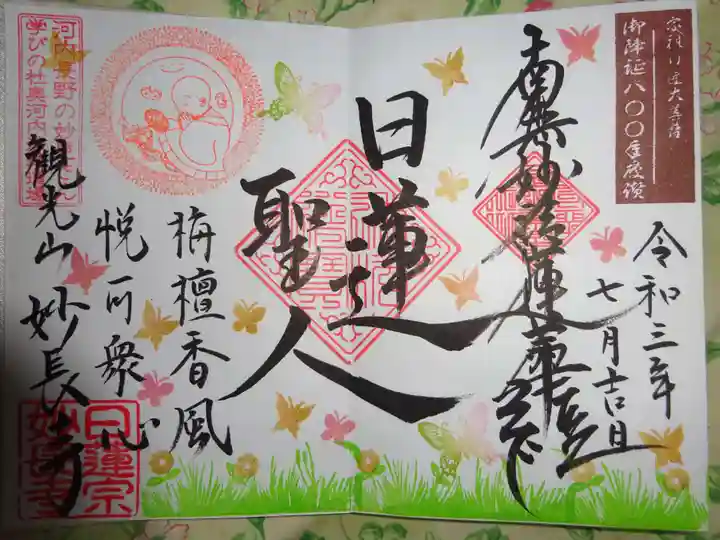 宗祖日蓮大菩薩
御降誕八〇〇年慶讃
令和三年
七月吉日
南無妙法蓮華経
日蓮
聖人
栴檀香風
悦可衆心
観光山 妙長寺
河内長野の妙
学びの社奥河内
日蓮宗
妙長寺